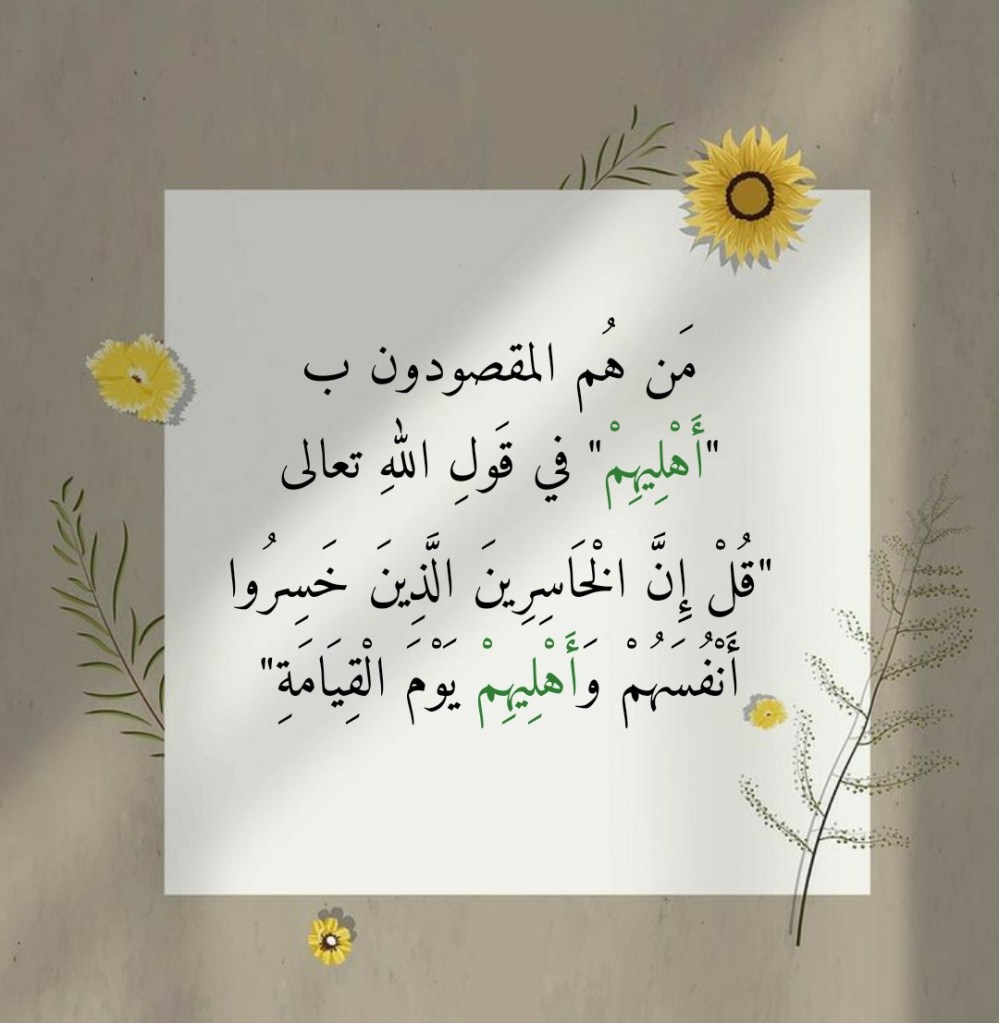 مَن هُم المقصودون ب
"أَهْلِيهِمْ" في قَولِ اللهِ تعالى
"قُلْ إِنَّ الْخَاسِرِينَ الَّذِينَ خَسِرُوا
أَنْفُسَهُمْ وَأَهْلِيهِمْ يَوْمَ الْقِيَامَةِ"